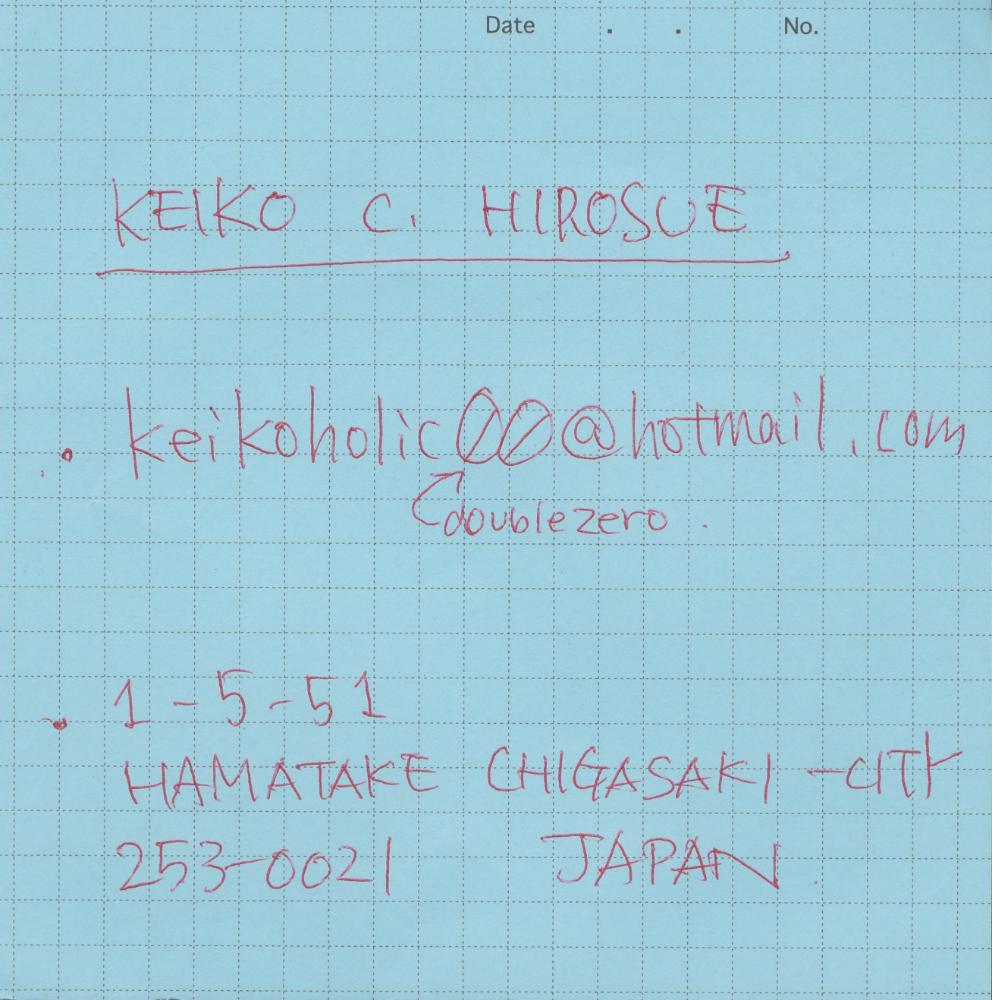 Date . . No.
KEIKO C. HIROSUE
. keikoholic00@hotmail.com
doublezero.
. 1-5-51
HAMATAKE CHIGASAKI-CITY
253-0021 JAPAN.